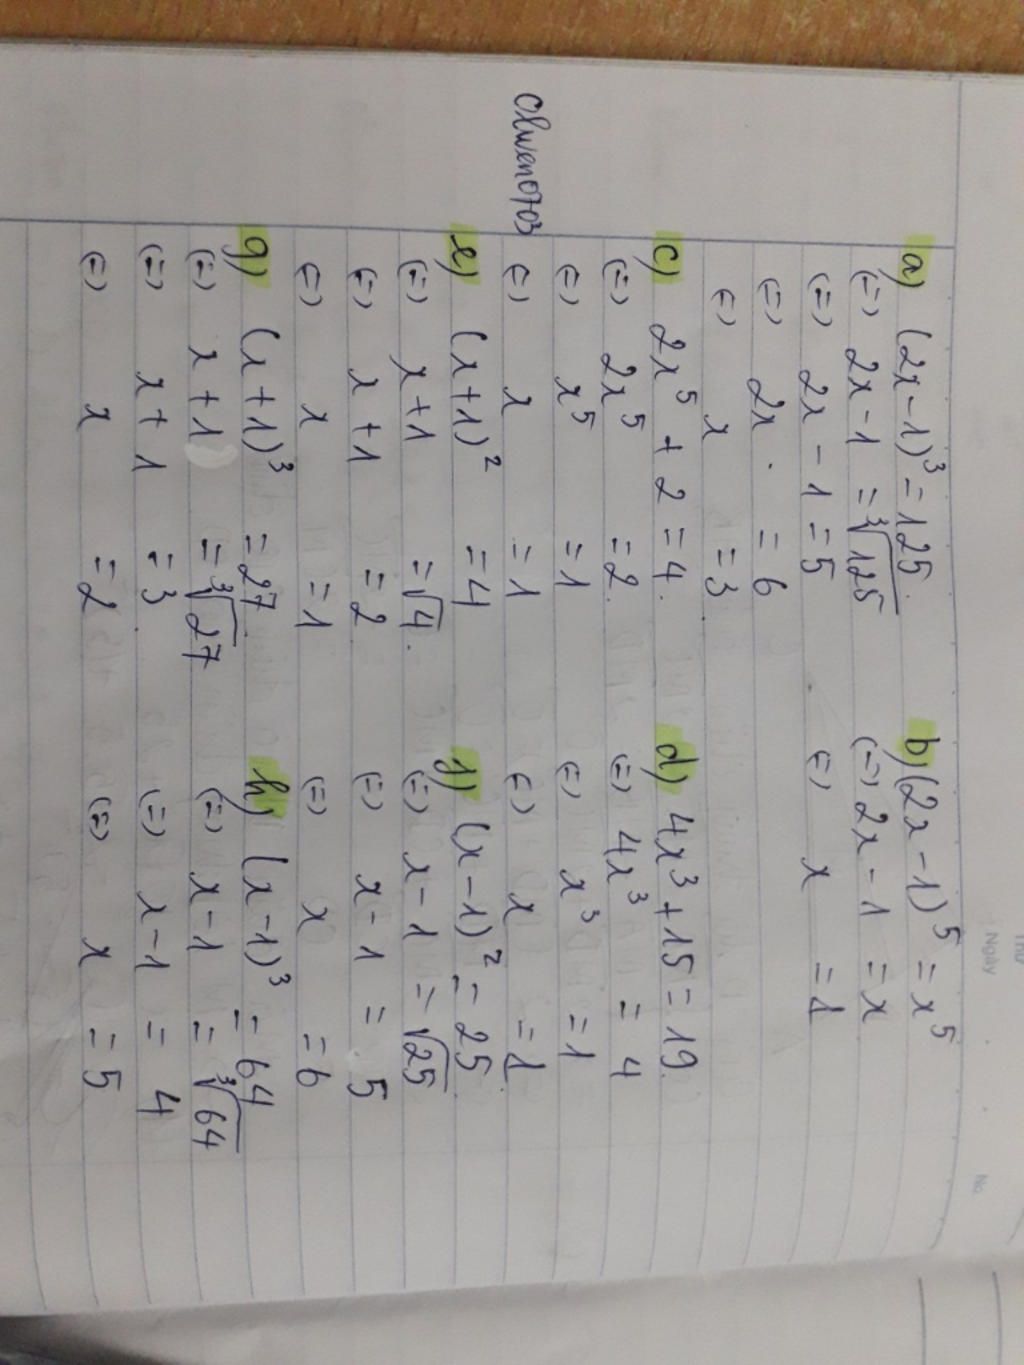 Thứ
Ngày
No.
a) (2x-1)³ = 125.
(=) 2x-1 = ∛125
(=) 2x-1 = 5
(=) 2x. = 6
(=) x = 3
b) (2x-1)⁵ = x⁵
(=) 2x-1 = x
(=) x = 1
c) 2x⁵ + 2 = 4.
(=) 2x⁵ = 2.
(=) x⁵ = 1
(=) x = 1
d) 4x³ + 15 = 19.
(=) 4x³ = 4
(=) x³ = 1
(=) x = 1
Olwen0703
e) (x+1)² = 4
(=) x+1 = √4.
(=) x+1 = 2
(=) x = 1
f) (x-1)² = 25
(=) x-1 = √25
(=) x-1 = 5
(=) x = 6
g) (x+1)³ = 27
(=) x+1 = ∛27
(=) x+1 = 3
(=) x = 2
h) (x-1)³ = 64
(=) x-1 = ∛64
(=) x-1 = 4
(=) x = 5